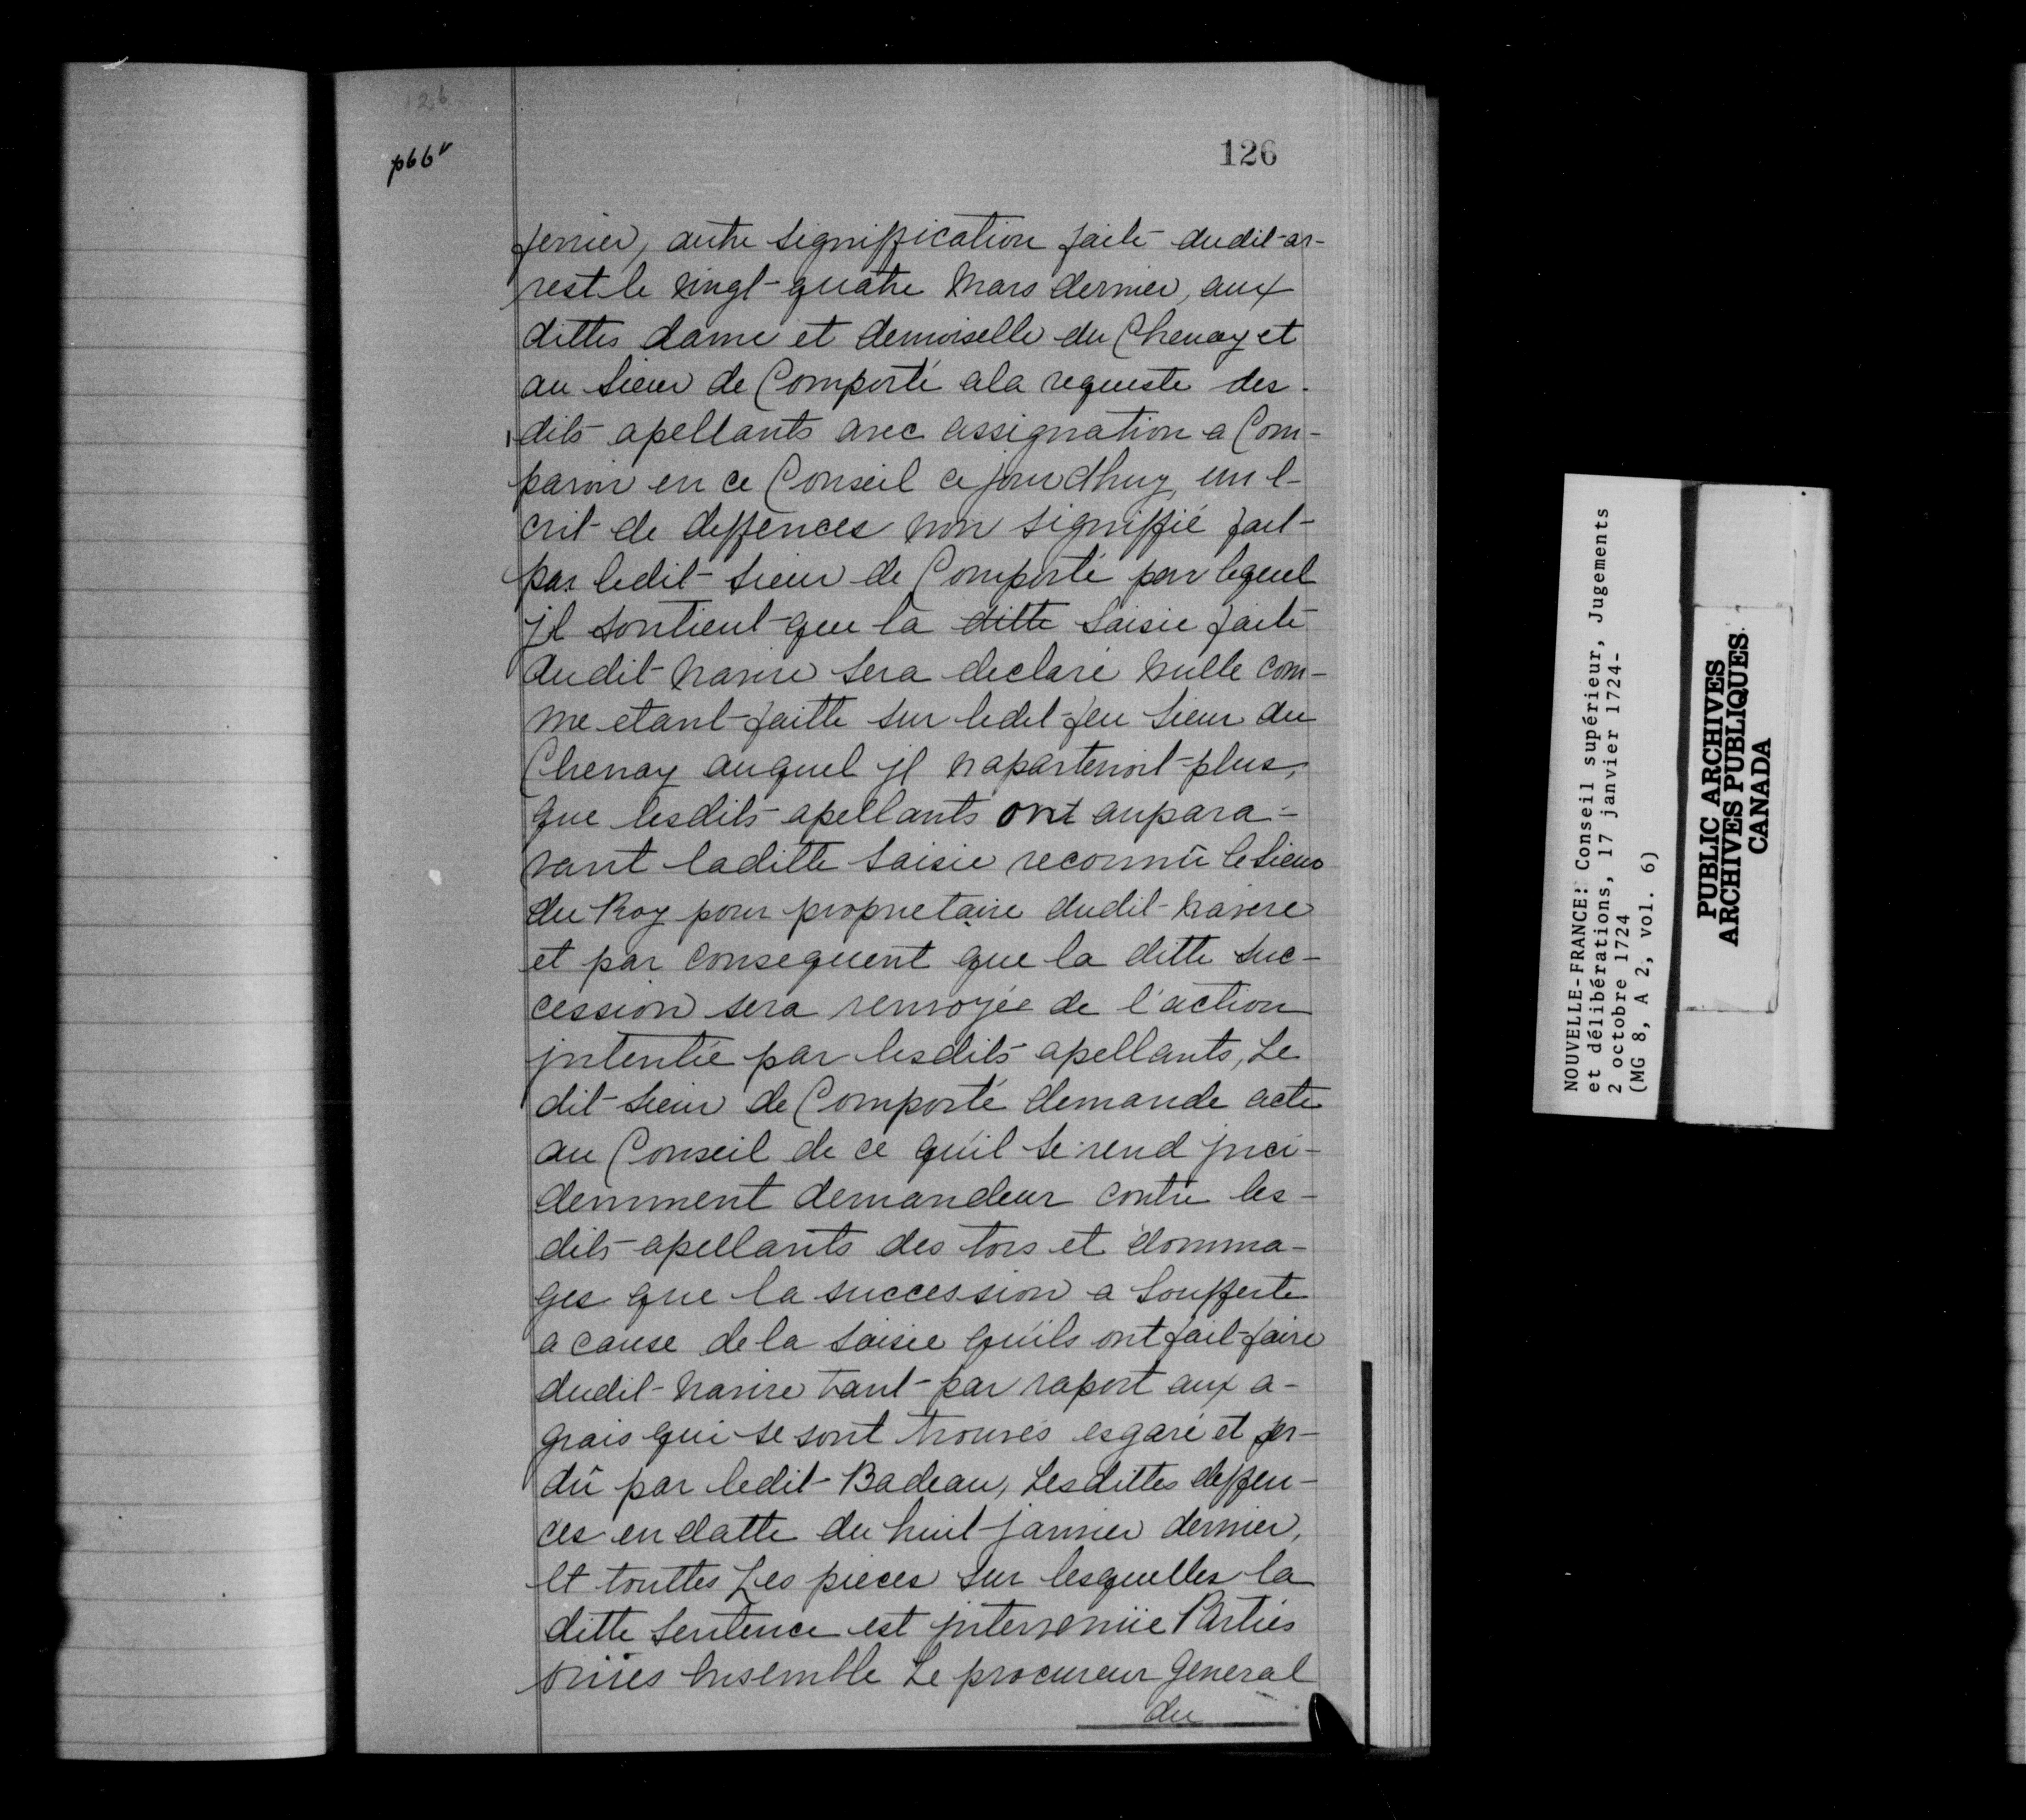 126
p66v
126
fevrier, autre signiffication faite dudit ar-
rest le vingt-quatre Mars dernier, aux
dittes dame et demoiselle du Chenay et
au Sieur de Comporté ala requeste des-
dits apellants avec assignation a Com-
paroir en ce Conseil ce jourdhuy, un e-
crit de deffences non signiffié fait
par ledit Sieur de Comporté par lequel
jl soutient que la ~~ditte~~ Saisie faite
dudit navire sera declaré nulle com-
me etant faitte sur ledit feu Sieur du
Chenay auquel jl napartenoit plus,
que lesdits apellants ont aupara-
vant laditte Saisie reconnû le Sieur
du Roy pour proprietaire dudit navire
et par consequent que la ditte suc-
cession sera renvoyée de l'action
jntentée par lesdits apellants, Le
dit Sieur de Comporté demande acte
au Conseil de ce qu'il se rend jnci-
demment demandeur contre les-
dits apellants des tors et domma-
ges que la succession a soufferte
a cause de la saisie qu'ils ont fait faire
dudit navire tant par raport aux a-
grais qui se sont trouvés esgaré et per-
dû par ledit Badeau, Lesdittes deffen-
ces en datte du huit janvier dernier,
et touttes Les pieces sur lesquelles la
ditte Sentence est jntervenüe Parties
ouïes Ensemble Le procureur General
du
NOUVELLE-FRANCE: Conseil supérieur, Jugements
et délibérations, 17 janvier 1724-
2 octobre 1724
(MG 8, A 2, vol. 6)
PUBLIC ARCHIVES
ARCHIVES PUBLIQUES
CANADA